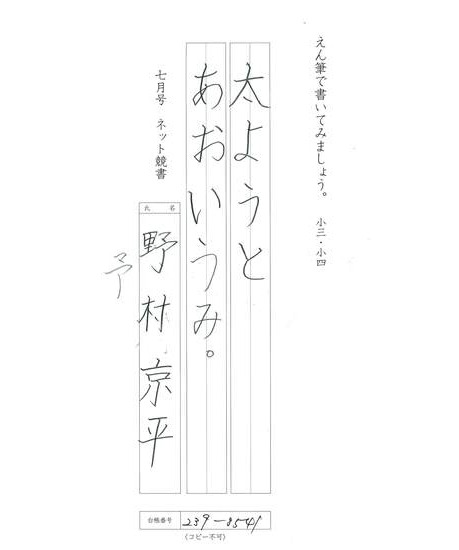 えん筆で書いてみましょう。　小三・小四
太ようと
あおいうみ。
七月号　ネット競書
氏名
野村京平
予
台帳番号 239-8541
(コピー不可)